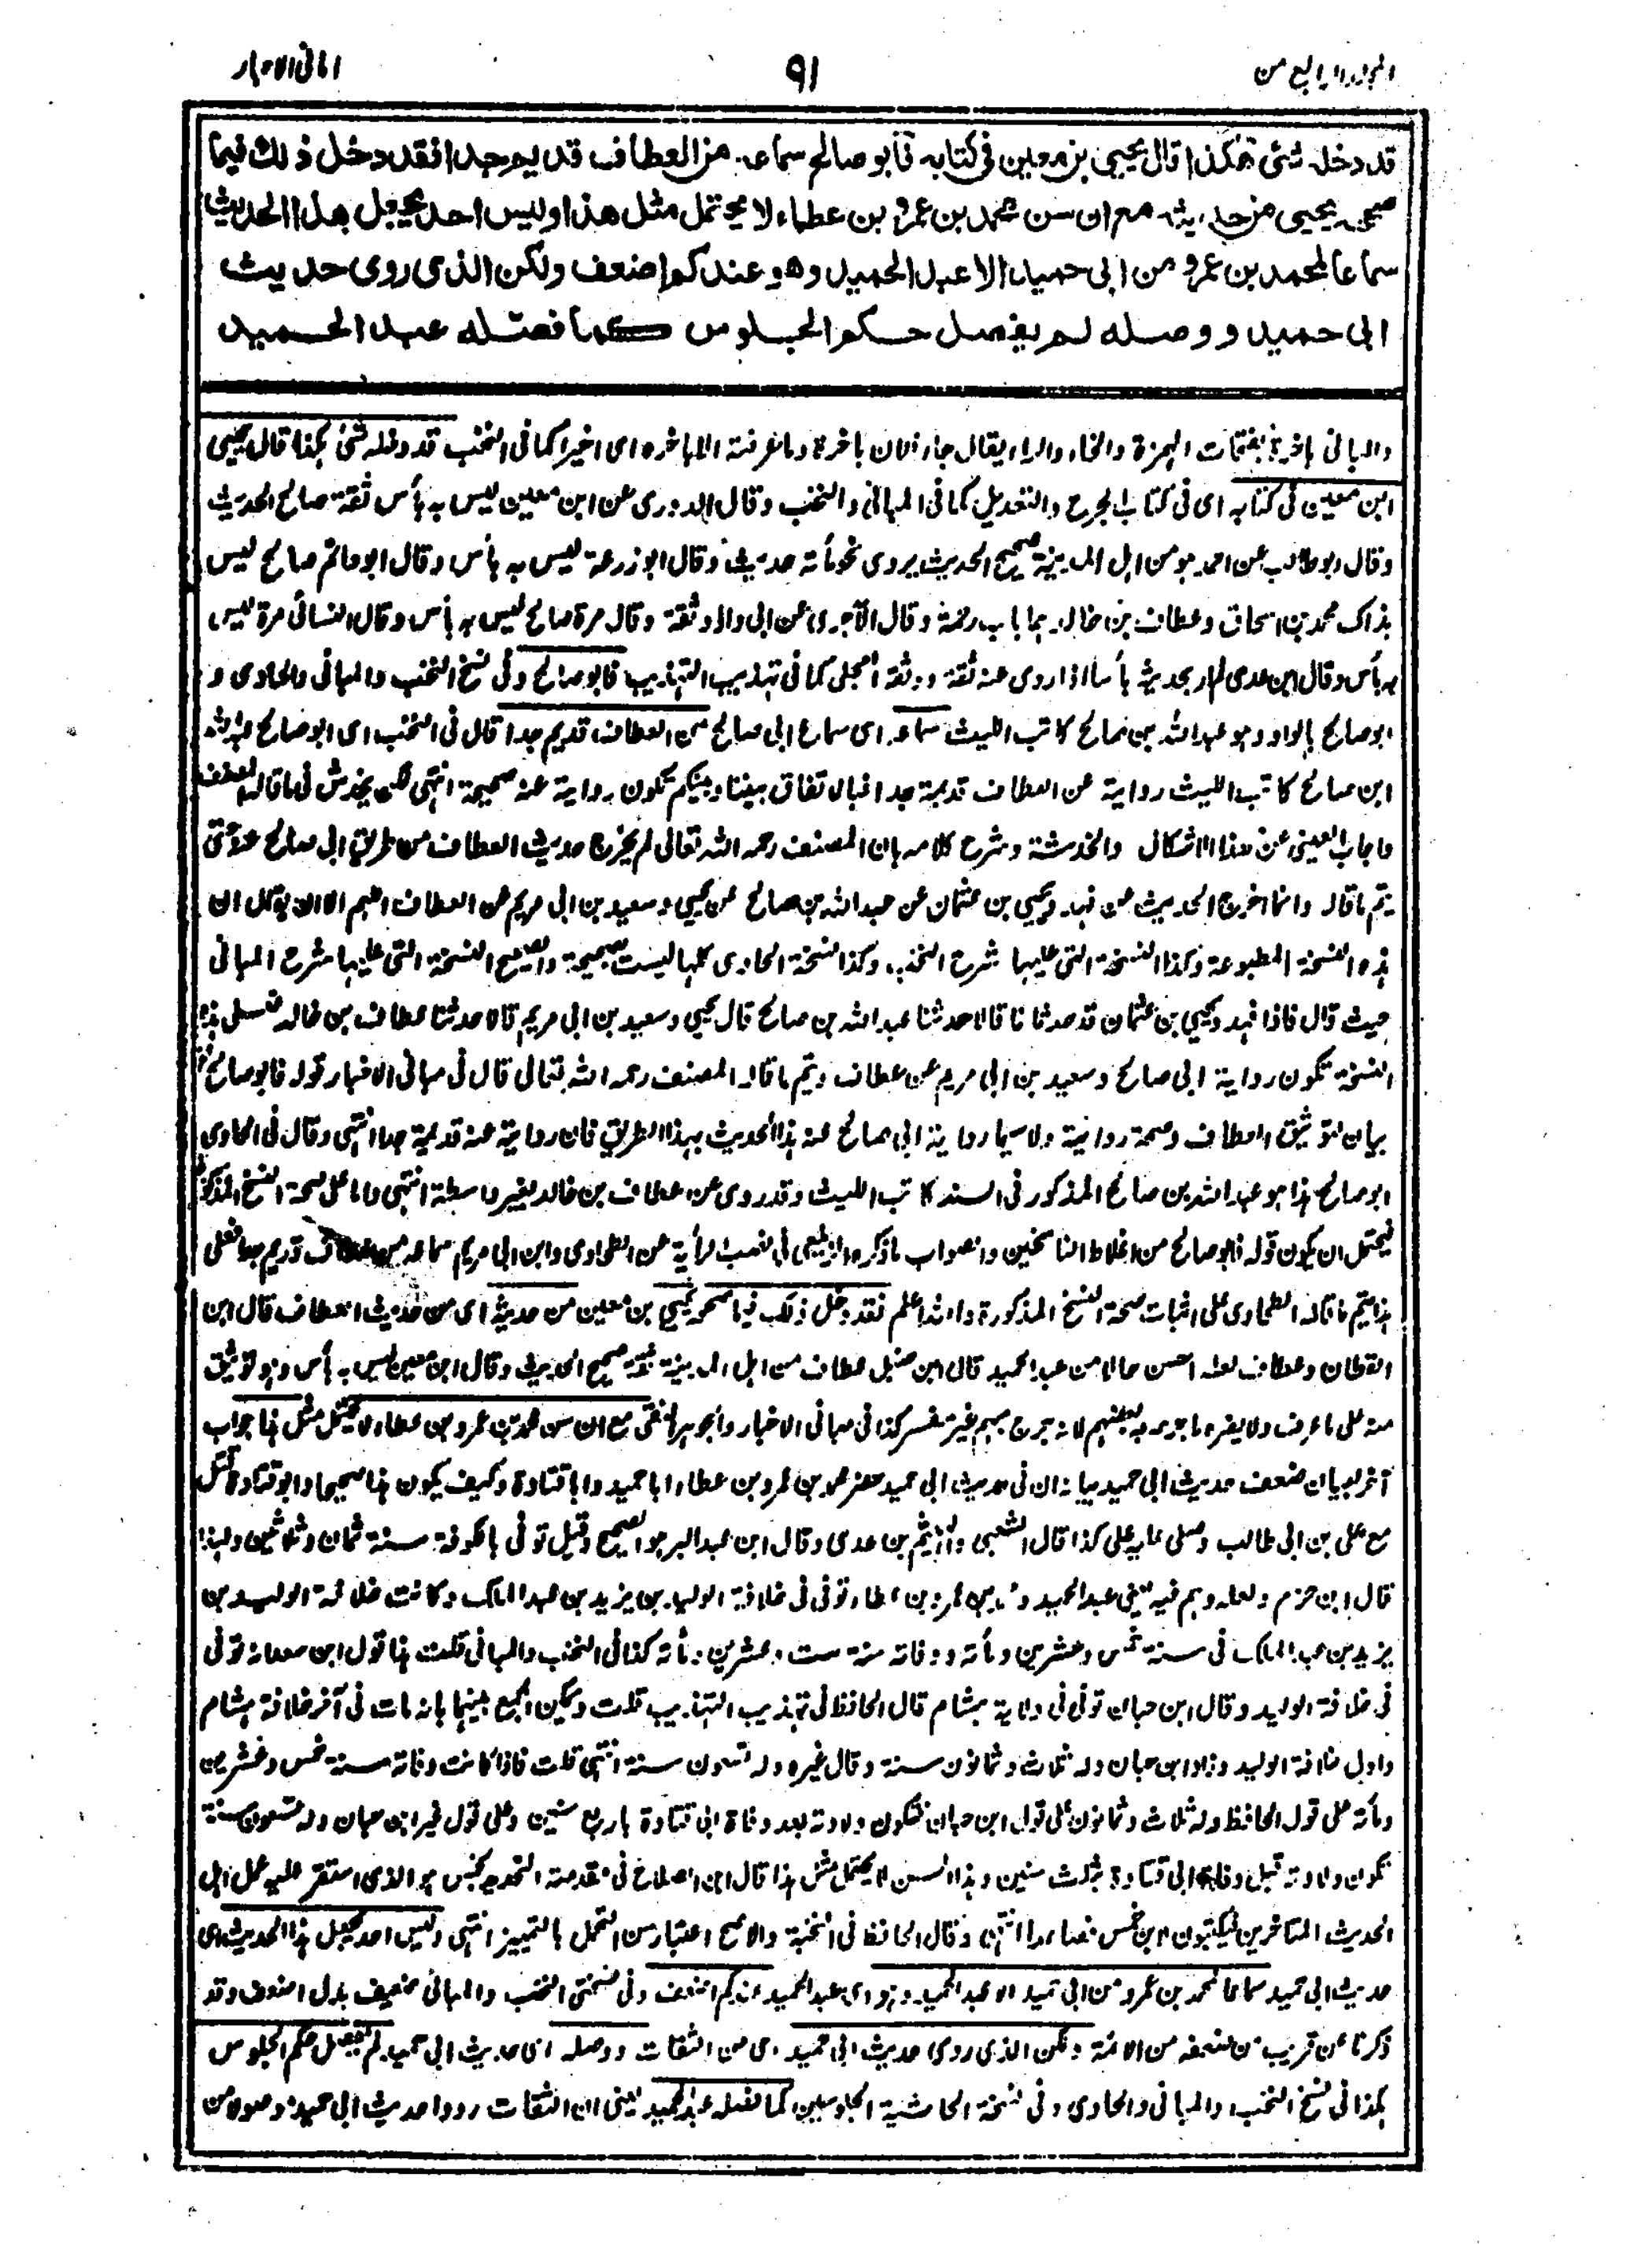 المجلد الرابع من
٩١
امانى الاحبار
قد دخله شئ هكذا قال يحيى بن معين فى كتابه فابو صالح سماعه من العطاف قديم جدا فقد دخل ذلك فيما
صححه يحيى من حديثه مع ان سن محمد بن عمرو بن عطاء لا يحتمل مثل هذا وليس احد يجعل هذا الحديث
سماعا لمحمد بن عمرو من ابى حميد الا عبد الحميد وهو عندكم اضعف ولكن الذى روى حديث
ابى حميد ووصله لم يفصل حكم الجلوس كما فصله عبد الحميد
والمبانى باخرة بفتحات الهمزة والخاء والراء يقال جاء فلان باخرة وما عرفته الا باخره اى اخيرا كما فى النخب قد دخله شئ هكذا قال يحيى
ابن معين فى كتابه اى فى كتاب الجرح والتعديل كما فى المبانى والنخب وقال الدورى عن ابن معين ليس به بأس ثقة صالح الحديث
وقال ابو طالب عن احمد هو من اهل المدينة صحيح الحديث يروى نحو مأئة حديث وقال ابو زرعة ليس به بأس وقال ابو حاتم صالح ليس
بذاك محمد بن اسحاق وعطاف بن خالد هما باب رحمة وقال الآجرى عن ابى داود ثقة وقال مرة صالح ليس به بأس وقال النسائى مرة ليس
به بأس وقال ابن عدى لم ار بحديثه بأسا اذا روى عنه ثقة ووثقه العجلى كما فى تهذيب التهذيب فابو صالح وفى نسخ النخب والمبانى والحاوى و
ابو صالح بالواو وهو عبد الله بن صالح كاتب الليث سماعه اى سماع ابى صالح من العطاف قديم جدا قال فى النخب اى ابو صالح عبد الله
ابن صالح كاتب الليث رواية عن العطاف قديمة جدا فبالاتفاق بيننا وبينكم تكون رواية عنه صحيحة انتهى لكن يخدش فى ما قاله المصنف
واجاب العينى عن هذا الاشكال والخدشة وشرح كلامه بان المصنف رحمه الله تعالى لم يخرج حديث العطاف من طريق ابى صالح عنه حتى
يتم ما قاله وانما اخرج الحديث عن فهد ويحيى بن عثمان عن عبد الله بن صالح عن يحيى وسعيد بن ابى مريم عن العطاف اللهم الا ان يقال ان
هذه النسخة المطبوعة وكذا النسخة التى عليها شرح النخب وكذا نسخة الحاوى كلها ليست بصحيحة والصحيح النسخة التى عليها شرح المبانى
حيث قال فاذا فهد ويحيى بن عثمان قد حدثانا قالا حدثنا عبد الله بن صالح قال يحيى وسعيد بن ابى مريم قالا حدثنا عطاف بن خالد فعلى هذه
النسخة تكون رواية ابى صالح وسعيد بن ابى مريم عن عطاف ويتم ما قاله المصنف رحمه الله تعالى قال فى مبانى الاخبار قوله فابو صالح
بيان لتوثيق العطاف وصحة روايته ولا سيما رواية ابى صالح عنه هذا الحديث بهذا الطريق فان روايته عنه قديمة جدا انتهى وقال فى الحاوى
ابو صالح هذا هو عبد الله بن صالح المذكور فى السند كاتب الليث وقد روى عن عطاف بن خالد بغير واسطة انتهى واما على صحة النسخ المذكورة
فيحتمل ان يكون قوله فابو صالح من اغلاط الناسخين والصواب ما ذكره الزيلعى فى نصب الرأية عن الطحاوى وابن ابى مريم سماعه من العطاف قديم جدا فعلى
هذا يتم ما قاله الطحاوى على اثبات صحة النسخ المذكورة والله اعلم فقد دخل ذلك فيما صححه يحيى بن معين من حديثه اى من حديث العطاف قال ابن
القطان وعطاف لعله احسن حالا من عبد الحميد قال ابن حنبل عطاف من اهل المدينة ثقة صحيح الحديث وقال ابن معين ليس به بأس وهو توثيق
منه على ما عرف ولا يضره ما جرحه به بعضهم لانه جرح مبهم غير مفسر كذا فى مبانى الاخبار والجوهر النقى مع ان سن محمد بن عمرو بن عطاء لا يحتمل مثل هذا جواب
آخر لبيان ضعف حديث ابى حميد بيانه ان فى حديث ابى حميد حضر محمد بن عمرو بن عطاء ابا حميد وابا قتادة وكيف يكون هذا صحيحا وابو قتادة قتل
مع على بن ابى طالب وصلى عليه على كذا قال الشعبى والهيثم بن عدى وقال ابن عبد البر هو الصحيح وقيل توفى بالكوفة سنة ثمان وثلاثين ولهذا
قال ابن حزم ولعله وهم فيه يعنى عبد الحميد ومحمد بن عمرو بن عطاء توفى فى خلافة الوليد بن يزيد بن عبد الملك وكانت خلافة الوليد بن
يزيد بن عبد الملك فى سنة خمس وعشرين ومأئة ووفاته سنة ست وعشرين ومأئة كذا فى النخب والمبانى قلت هذا قول ابن سعد انه توفى
فى خلافة الوليد وقال ابن حبان توفى فى ولاية هشام قال الحافظ فى تهذيب التهذيب قلت ويمكن الجمع بينهما بانه مات فى آخر خلافة هشام
واول خلافة الوليد وزاد ابن حبان وله ثلاث وثمانون سنة وقال غيره وله تسعون سنة انتهى قلت فاذا كانت وفاته سنة خمس وعشرين
ومأئة على قول الحافظ وله ثلاث وثمانون على قول ابن حبان فتكون ولادته بعد وفاة ابى قتادة باربع سنين وعلى قول غير ابن حبان وله تسعون سنة
تكون ولادته قبل وفاة ابى قتادة بثلث سنين وهذا السن لا يحتمل مثل هذا قال ابن الصلاح فى مقدمته التحديد بخمس هو الذى استقر عليه عمل اهل
الحديث المتاخرين فيكتبون لابن خمس فصاعدا انتهى وقال الحافظ فى النخبة والاصح اعتبار سن التحمل بالتمييز انتهى وليس احد يجعل هذا الحديث اى
حديث ابى حميد سماعا لمحمد بن عمرو من ابى حميد الا عبد الحميد وهو اى عبد الحميد عندكم اضعف وفى نسختى النخب والمبانى ضعيف بدل اضعف وقد
ذكرنا عن قريب من ضعفه من الائمة ولكن الذى روى حديث ابى حميد اى من الثقات ووصله اى حديث ابى حميد لم يفصل حكم الجلوس
هكذا فى نسخ النخب والمبانى والحاوى وفى نسخة الحاشية الجلوسين كما فصله عبد الحميد يعنى ان الثقات رووا حديث ابى حميد ووصلوه من